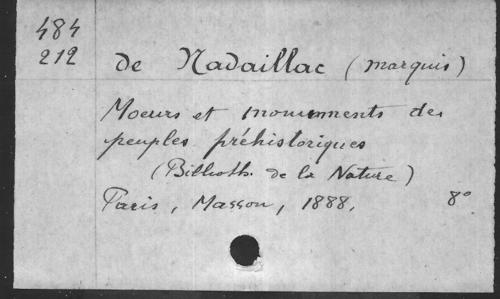 484
212
de Nadaillac (marquis)
Moeurs et monuments des
peuples préhistoriques
(Biblioth. de la Nature)
Paris, Masson, 1888, 8°